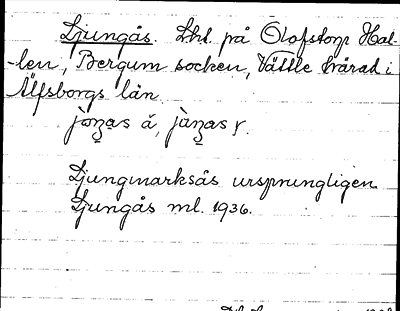 Ljungås. Lht. på Olofstorp Hal-
-len, Bergum socken, Vättle härad i
Älfsborgs län.
Ljungmarksås ursprungligen
Ljungås ml. 1936.